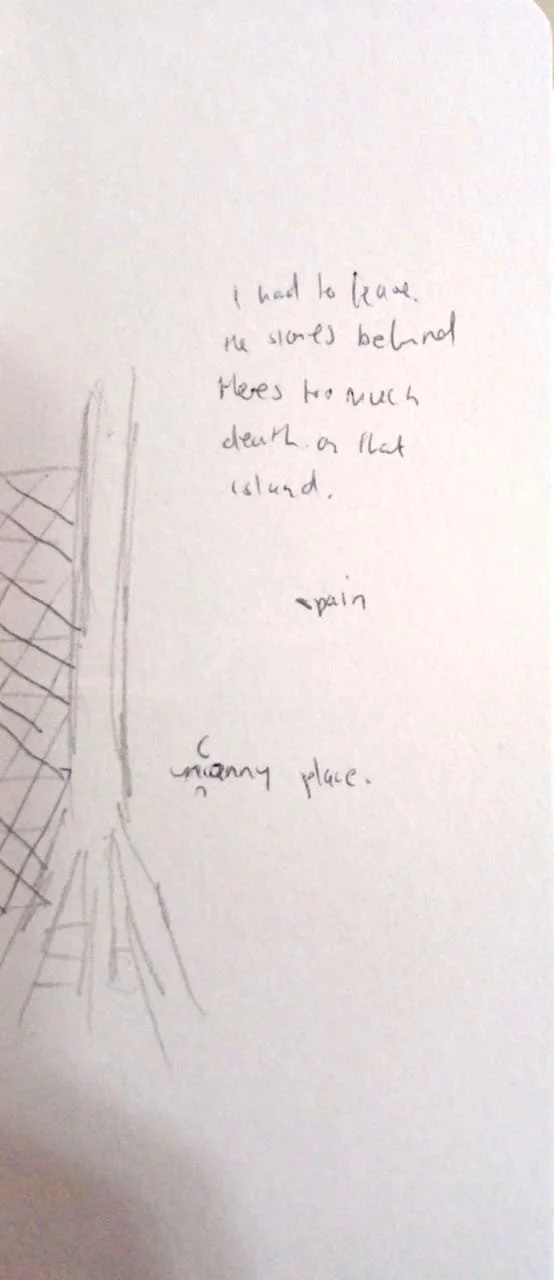 I had to leave.
the stones behind
theres too much
death on that
island.
pain
uncanny place.